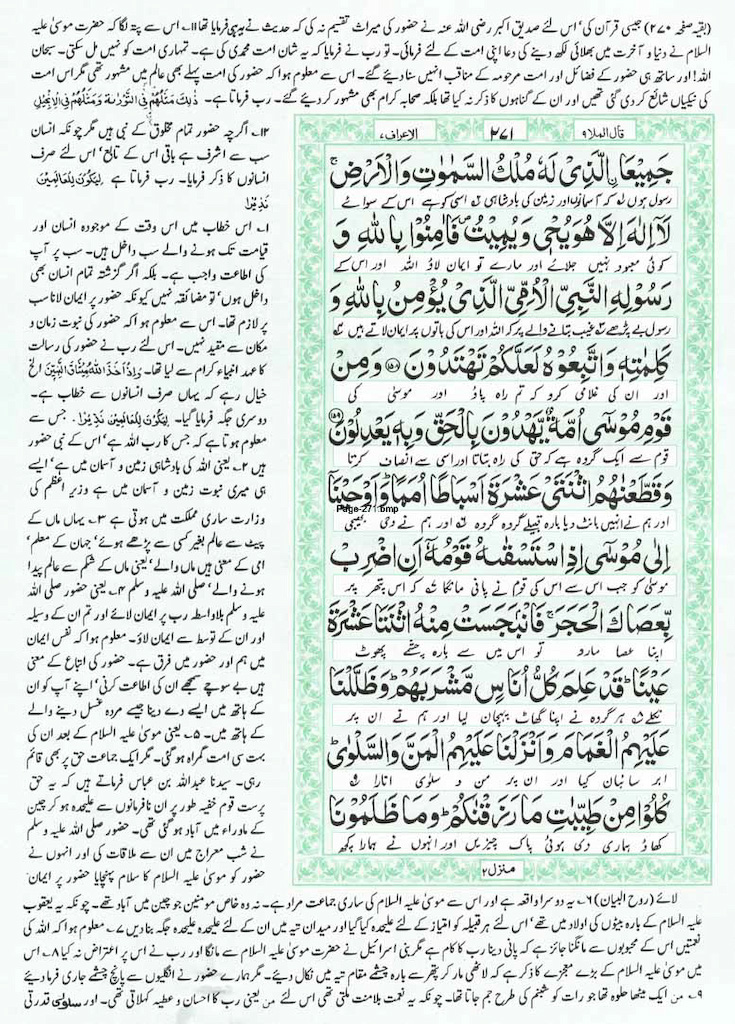 (بقیہ صفحہ ۲۷۰) جیسی قرآن کی' اس لئے صدیق اکبر رضی اللہ عنہ نے حضور کی میراث تقسیم نہ کی کہ حدیث نے یہ ہی فرمایا تھا ۱۱۔ اس سے پتہ لگا کہ حضرت موسیٰ علیہ
السلام نے دنیا و آخرت میں بھلائی لکھ دینے کی دعا اپنی امت کے لئے فرمائی۔ تو رب نے فرمایا کہ یہ شان امت محمدی کی ہے۔ تمہاری امت کو نہیں مل سکتی۔ سبحان
اللہ! اور ساتھ ہی حضور کے فضائل اور امت مرحومہ کے مناقب انہیں سنا دیئے گئے۔ اس سے معلوم ہوا کہ حضور کی امت پہلے بھی عالم میں مشہور تھی مگر اس امت
کی نیکیاں شائع کر دی گئی تھیں اور ان کے گناہوں کا ذکر نہ کیا تھا بلکہ صحابہ کرام بھی مشہور کر دیئے گئے۔ رب فرماتا ہے۔ ذٰلِكَ مَثَلُهُمْ فِی التَّوْرٰىةِ وَمَثَلُهُمْ فِی الْاِنْجِیْلِ
۱۲۔ اگرچہ حضور تمام مخلوق کے نبی ہیں مگر چونکہ انسان
سب سے اشرف ہے باقی اس کے تابع' اس لئے صرف
انسانوں کا ذکر فرمایا۔ رب فرماتا ہے لِیَكُوْنَ لِلْعَالَمِیْنَ
نَذِیْرًا
۱۔ اس خطاب میں اس وقت کے موجودہ انسان اور
قیامت تک ہونے والے سب داخل ہیں۔ سب پر آپ
کی اطاعت واجب ہے۔ بلکہ اگر گزشتہ تمام انسان بھی
داخل ہوں' تو مضائقہ نہیں کیونکہ حضور پر ایمان لانا سب
پر لازم تھا۔ اس سے معلوم ہوا کہ حضور کی نبوت زمان و
مکان سے مقید نہیں۔ اس لئے رب نے حضور کی رسالت
کا عہد انبیاء کرام سے لیا تھا۔ وَاِذْ اَخَذَ اللّٰهُ مِیْثَاقَ النَّبِیّٖنَ الخ
خیال رہے کہ یہاں صرف انسانوں سے خطاب ہے۔
دوسری جگہ فرمایا گیا۔ لِیَكُوْنَ لِلْعَالَمِیْنَ نَذِیْرًا۔ جس سے
معلوم ہوتا ہے کہ جس کا رب اللہ ہے' اس کے نبی حضور
ہیں ۲۔ یعنی اللہ کی بادشاہی زمین و آسمان میں ہے' ایسے
ہی میری نبوت زمین و آسمان میں ہے وزیر اعظم کی
وزارت ساری مملکت میں ہوتی ہے ۳۔ یہاں ماں کے
پیٹ سے عالم بغیر کسی سے پڑھے ہوئے' جہان کے معلم'
امی کے معنی ہیں ماں والے' یعنی ماں کے شکم سے عالم پیدا
ہونے والے' صلی اللہ علیہ وسلم ۴۔ یعنی حضور صلی اللہ
علیہ وسلم بلاواسطہ رب پر ایمان لائے اور تم ان کے وسیلہ
اور ان کے توسط سے ایمان لاؤ۔ معلوم ہوا کہ نفس ایمان
میں ہم اور حضور میں فرق ہے۔ حضور کی اتباع کے معنی
ہیں بے سوچے سمجھے ان کی اطاعت کرنی' اپنے آپ کو ان
کے ہاتھ میں ایسے دے دینا جیسے مردہ غسل دینے والے
کے ہاتھ میں۔ ۵۔ یعنی موسیٰ علیہ السلام کے بعد ان کی
بہت سی امت گمراہ ہو گئی۔ مگر ایک جماعت حق پر بھی قائم
رہی۔ سیدنا عبداللہ بن عباس فرماتے ہیں کہ یہ حق
پرست قوم خفیہ طور پر ان نافرمانوں سے علیحدہ ہو کر چین
کے ماوراء میں آباد ہو گئی تھی۔ حضور صلی اللہ علیہ وسلم
نے شب معراج میں ان سے ملاقات کی اور انہوں نے
حضور کو موسیٰ علیہ السلام کا سلام پہنچایا حضور پر ایمان
قال الملا ۹
۲۷۱
الاعراف ۷
جَمِیْعَا ۨ الَّذِیْ لَهٗ مُلْكُ السَّمٰوٰتِ وَالْاَرْضِ ۚ
رسول ہوں کہ آسمانوں اور زمین کی بادشاہی اسی کو ہے اس کے سوا
لَاۤ اِلٰهَ اِلَّا هُوَ یُحْیٖ وَ یُمِیْتُ ۪ فَاٰمِنُوْا بِاللّٰهِ وَ
کوئی معبود نہیں جلائے اور مارے تو ایمان لاؤ اللہ اور اس کے
رَسُوْلِهِ النَّبِیِّ الْاُمِّیِّ الَّذِیْ یُؤْمِنُ بِاللّٰهِ وَ
رسول بے پڑھے غیب بتانے والے پر کہ اللہ اور اس کی باتوں پر ایمان لاتے ہیں
كَلِمٰتِهٖ وَاتَّبِعُوْهُ لَعَلَّكُمْ تَهْتَدُوْنَ ﴿۱۵۸﴾ وَ مِنْ
اور ان کی غلامی کرو کہ تم راہ پاؤ اور موسیٰ کی
قَوْمِ مُوْسٰۤى اُمَّةٌ یَّهْدُوْنَ بِالْحَقِّ وَ بِهٖ یَعْدِلُوْنَ ﴿۱۵۹﴾
قوم سے ایک گروہ ہے کہ حق کی راہ بتاتا اور اسی سے انصاف کرتا
وَ قَطَّعْنٰهُمُ اثْنَتَیْ عَشْرَةَ اَسْبَاطًا اُمَمًا ؕ وَ اَوْحَیْنَاۤ
Page-271.bmp
اور ہم نے انہیں بانٹ دیا بارہ قبیلے گروہ گروہ اور ہم نے وحی بھیجی
اِلٰى مُوْسٰۤى اِذِ اسْتَسْقٰىهُ قَوْمُهٗۤ اَنِ اضْرِبْ
موسیٰ کو جب اس سے اس کی قوم نے پانی مانگا کہ اس پتھر پر
بِّعَصَاكَ الْحَجَرَ ۚ فَانْۢبَجَسَتْ مِنْهُ اثْنَتَا عَشْرَةَ
اپنا عصا مارو تو اس میں سے بارہ چشمے پھوٹ
عَیْنًا ؕ قَدْ عَلِمَ كُلُّ اُنَاسٍ مَّشْرَبَهُمْ ؕ وَ ظَلَّلْنَا
نکلے ہر گروہ نے اپنا گھاٹ پہچان لیا اور ہم نے ان پر
عَلَیْهِمُ الْغَمَامَ وَ اَنْزَلْنَا عَلَیْهِمُ الْمَنَّ وَ السَّلْوٰى ؕ
ابر سائبان کیا اور ان پر من و سلویٰ اتارا
كُلُوْا مِنْ طَیِّبٰتِ مَا رَزَقْنٰكُمْ ؕ وَ مَا ظَلَمُوْنَا
کھاؤ ہماری دی ہوئی پاک چیزیں اور انہوں نے ہمارا کچھ
منزل ۲
لائے (روح البیان) ۶۔ یہ دوسرا واقعہ ہے اور اس سے موسیٰ علیہ السلام کی ساری جماعت مراد ہے۔ نہ وہ خاص مومنین جو چین میں آباد تھے۔ چونکہ یہ یعقوب
علیہ السلام کے بارہ بیٹوں کی اولاد میں تھے' اس لئے ہر قبیلہ کو امتیاز کے لئے علیحدہ کیا گیا اور میدان تیہ میں ان کے لئے علیحدہ علیحدہ جگہ بنا دیں ۷۔ معلوم ہوا کہ اللہ کی
نعمتیں اس کے محبوبوں سے مانگنا جائز ہے کہ پانی دینا رب کا کام ہے مگر بنی اسرائیل نے حضرت موسیٰ علیہ السلام سے مانگا اور رب نے اس پر اعتراض نہ کیا ۸۔ اس
میں موسیٰ علیہ السلام کے بڑے معجزے کا ذکر ہے کہ لاٹھی مار کر پتھر سے بارہ چشمے مقام تیہ میں نکال دیئے۔ مگر ہمارے حضور نے انگلیوں سے پانچ چشمے جاری فرما دیئے
۹۔ من ایک میٹھا حلوہ تھا جو رات کو شبنم کی طرح جم جاتا تھا۔ چونکہ یہ نعمت بلامنت ملتی تھی اس لئے من یعنی رب کا احسان و عطیہ کہلاتی تھی۔ اور سلویٰ قدرتی